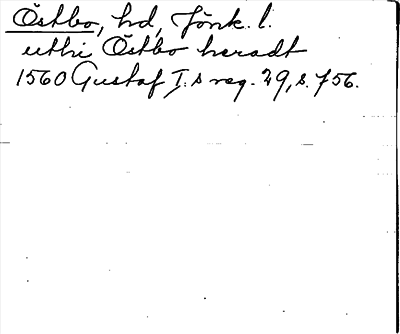 Östbo, hd, Jönk. l.
uthi Östbo heradt
1560 Gustaf I.s reg. 29, s. 756.